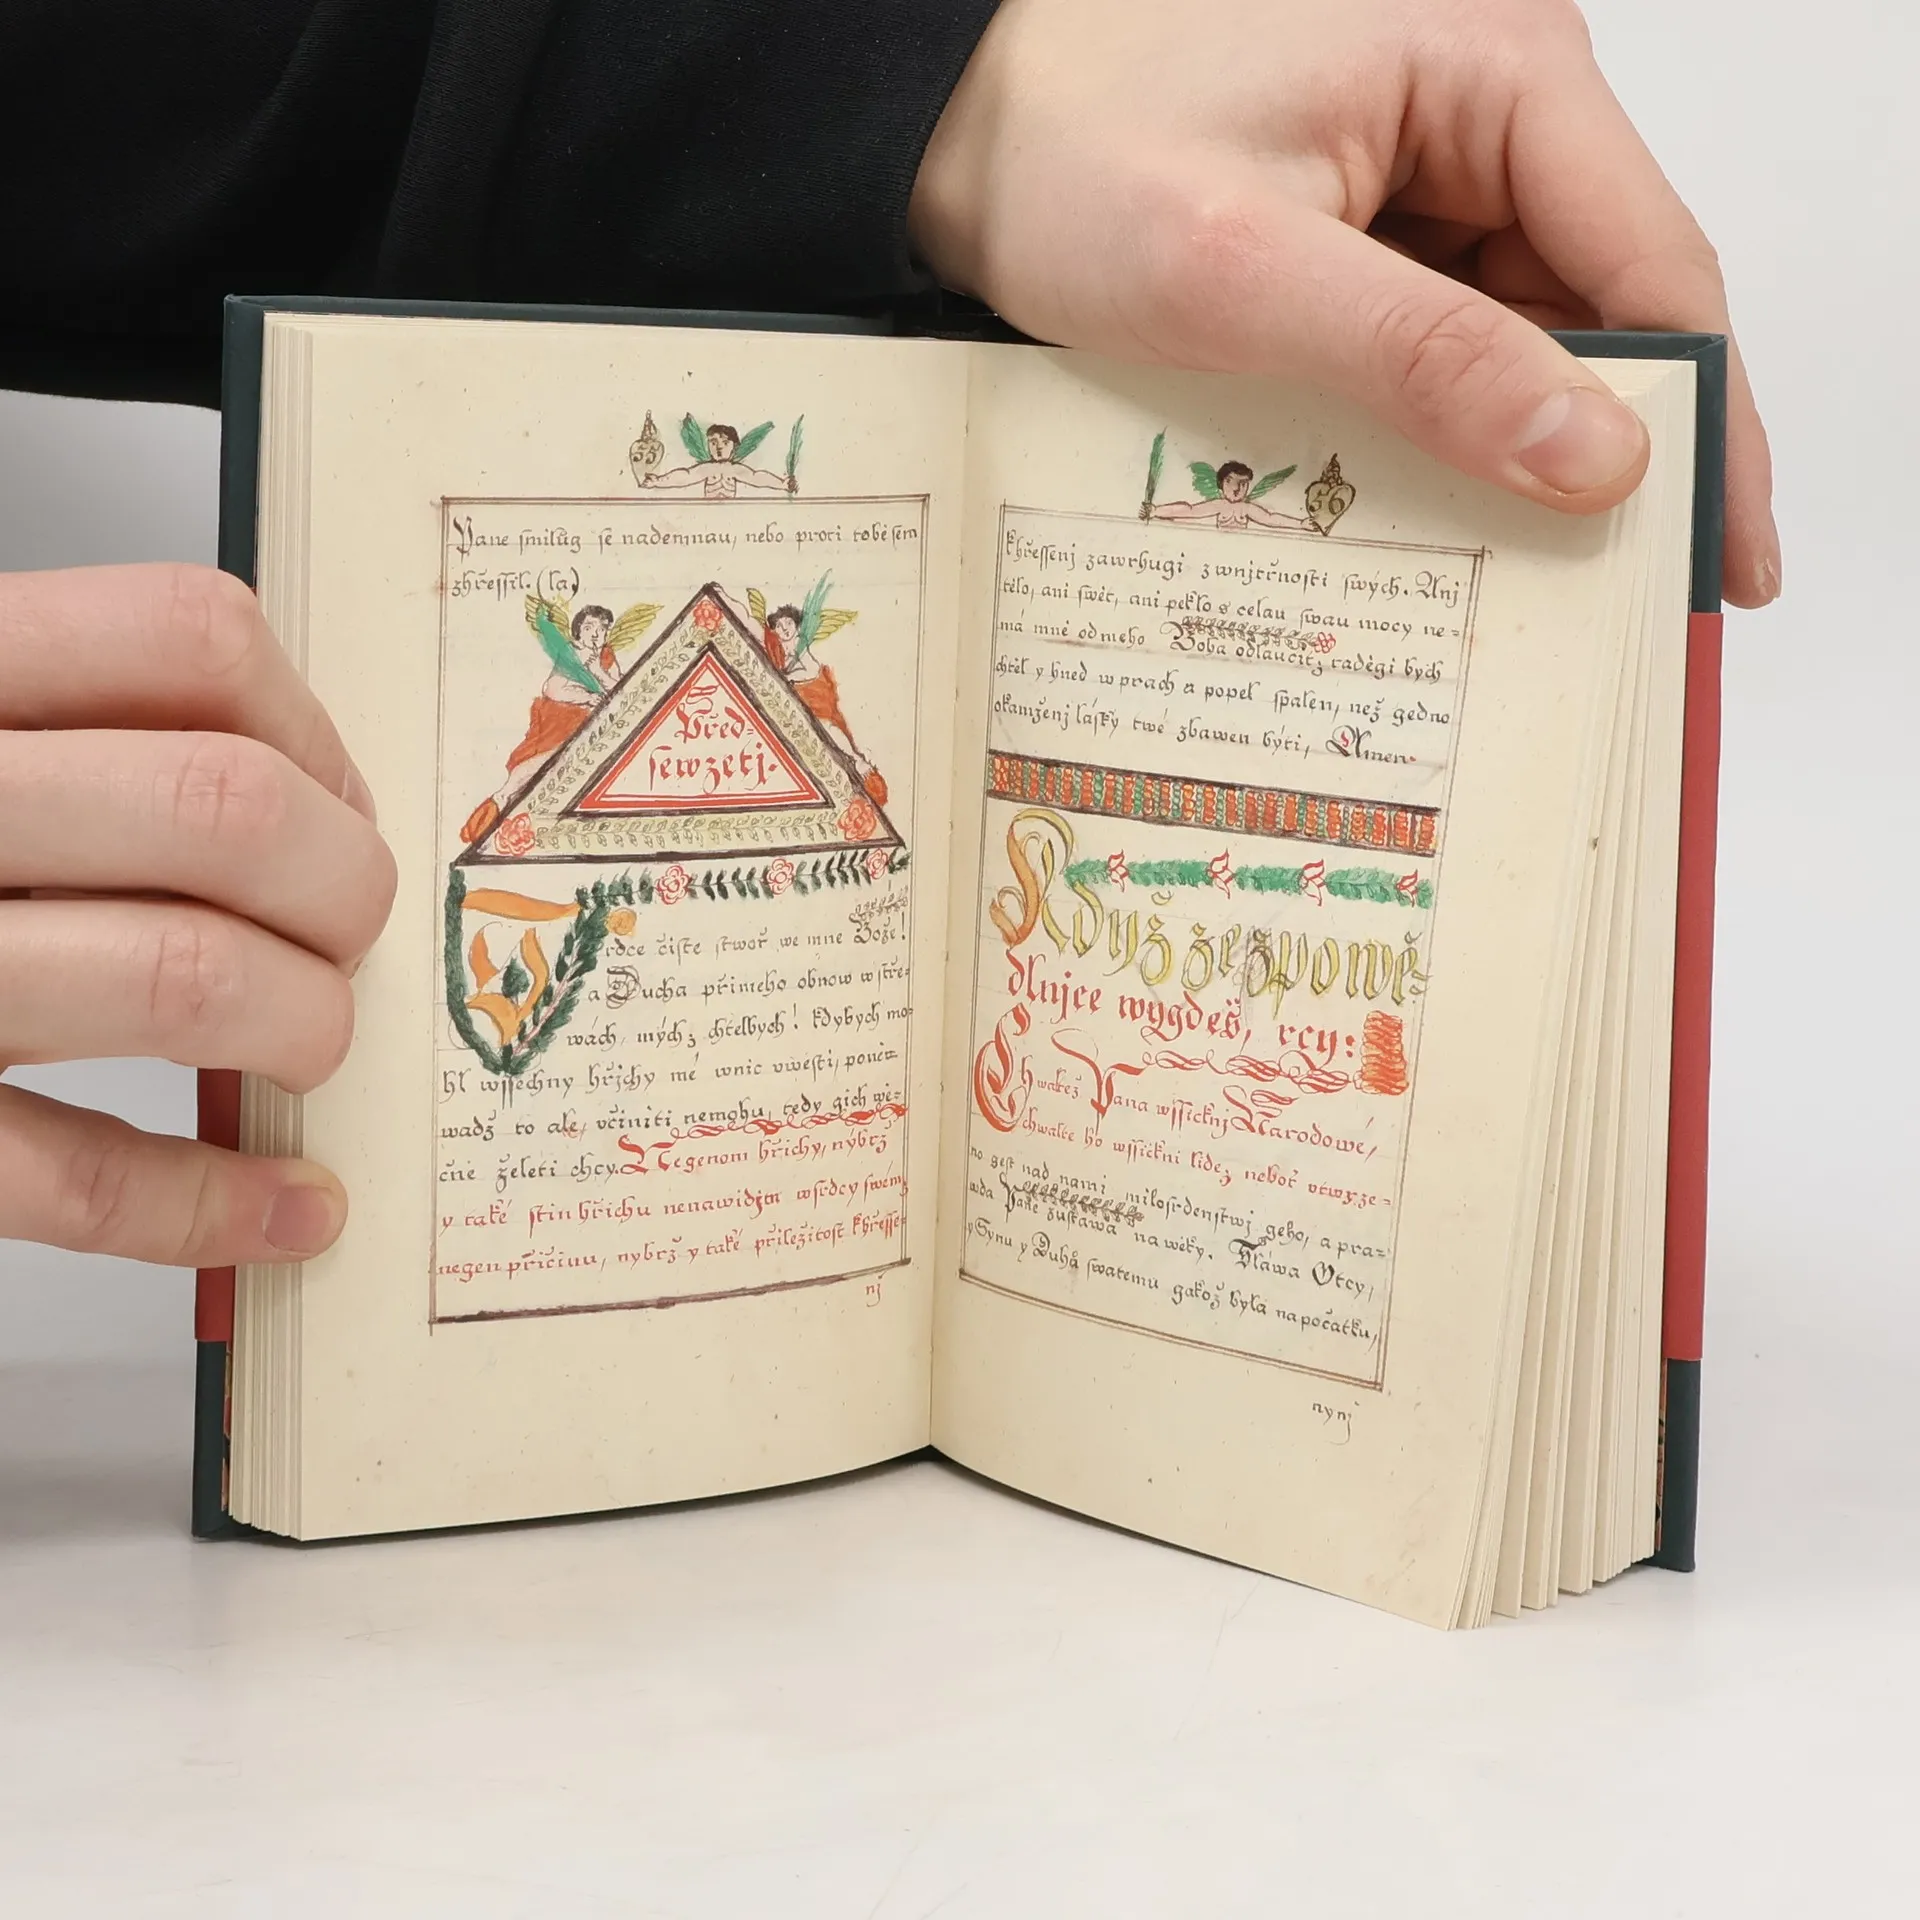 55
Pane smilůg se nademnau, nebo proti tobě sem
zhřessil. (la)
Před=
sewzetj.
Srdce čiste stwoř we mne Bože!
a Ducha přimeho obnow w stře=
wách mých chtelbych! kdybych mo=
hl wssechny hřjchy mé wnic uwesti, poně=
wadž to ale, včiniti nemohu, tedy gich wě=
čne želeti chcy. Negenom hřichy, nýbrž
y také stin hřichu nenawidjm wsrdcy swém,
negen přičinu, nybrž y také přiležitost khřesse=
nj
56
khřessenj zawrhugi zwnjtřnosti swých. Anj
tělo, ani swět, ani peklo s celau swau mocy ne=
má mně odmeho Boha odlaučit, raděgi bych
chtěl y hned w prach a popel spalen, než gedno
okamženj lásky twé zbawen býti, Amen.
Když ze zpowě=
dlnjce wygdeš, rcy:
Chwalež Pana wssicknj Narodowé,
chwalte ho wssickni lide, neboť utwrze=
no gest nad nami milosrdenstwj geho, a pra=
wda Páně zustawa na wěky. Sláwa Otcy,
y Synu y Duhů swatemu gakož byla napočatku,
nynj